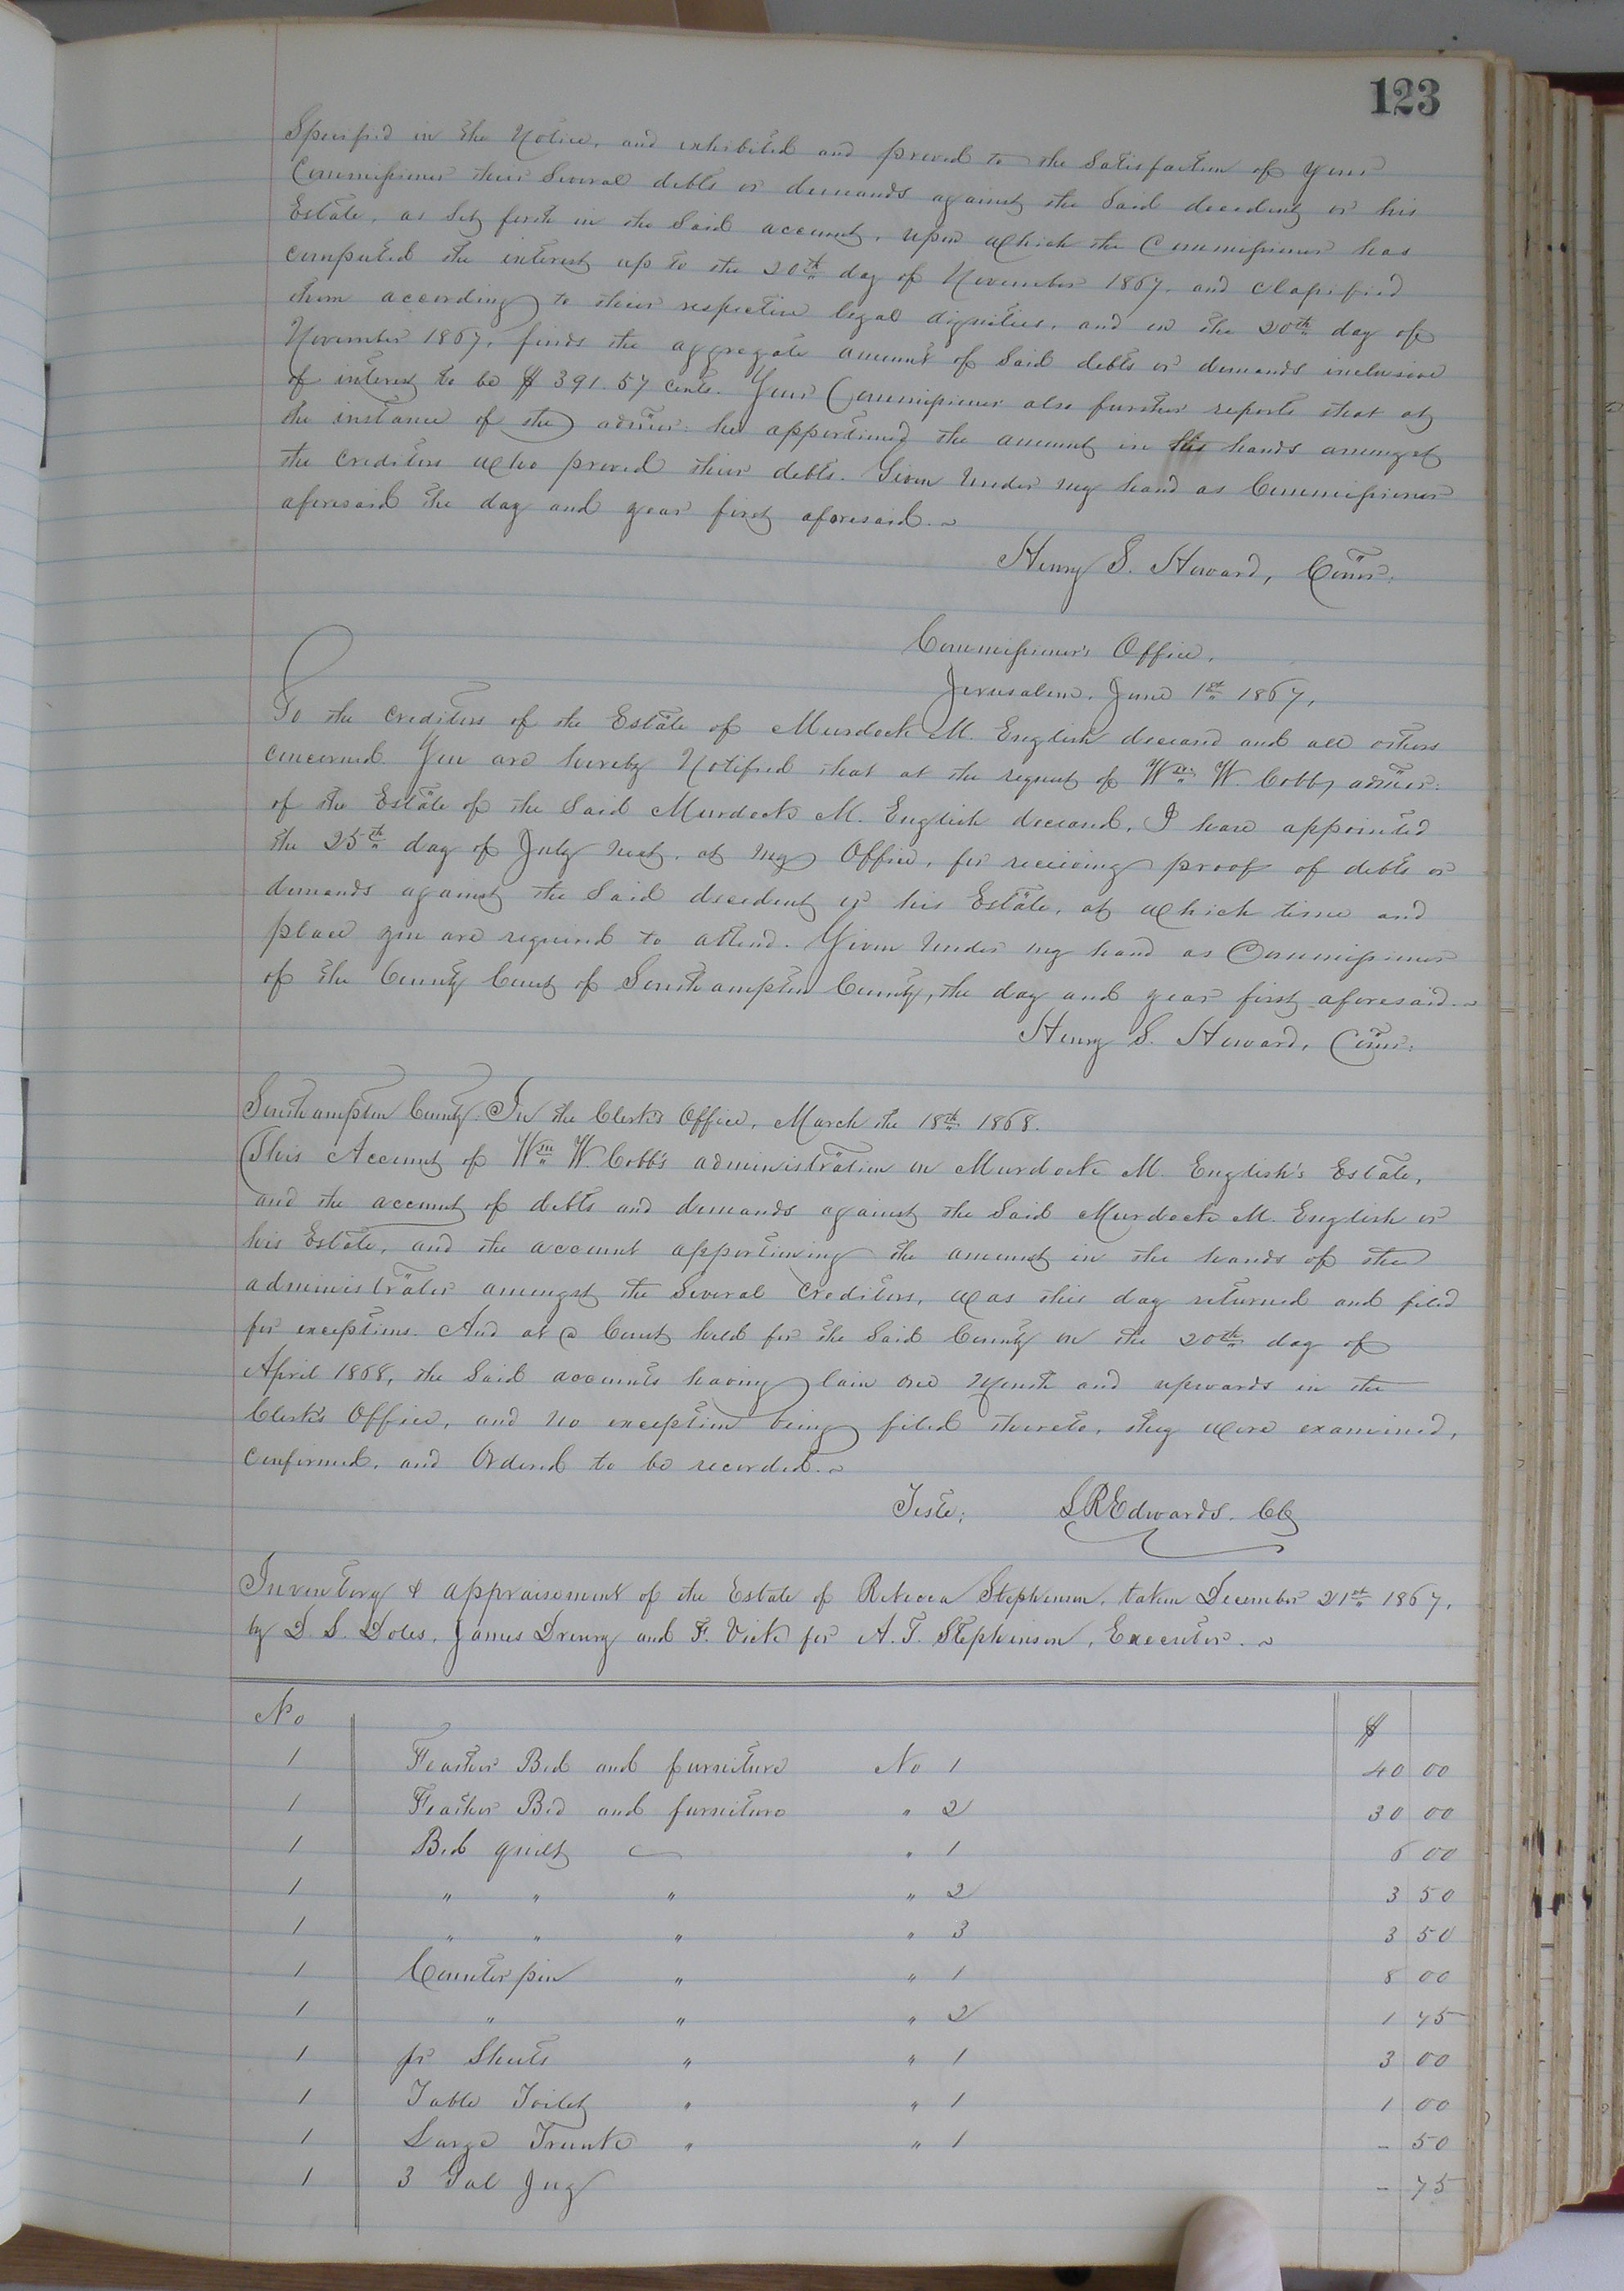 123
Specified in the Notice, and exhibited and proved to the Satisfaction of your
Commissioner their Several debts or demands against the Said decedent or his
Estate, as Set forth in the Said account, upon which the Commissioner has
computed the interest up to the 20th day of November 1867, and classified
them according to their respective legal dignities, and on the 20th day of
November 1867, finds the aggregate amount of Said debts or demands inclusive
of interest to be $391.57 cents. Your Commissioner also further reports that at
the instance of the admor: he apportioned the amount in his hands amongst
the Creditors who proved their debts. Given Under my hand as Commissioner
aforesaid the day and year first aforesaid.~
Henry S. Howard, Comr:
Commissioner's Office,
Jerusalem, June 1st 1867,
To the creditors of the Estate of Murdock M. English deceasd and all others
concerned. You are hereby Notified that at the request of Wm W. Cobb, admor:
of the Estate of the Said Murdock M. English deceasd, I have appointed
the 25th day of July next, at my Office, for receiving proof of debts or
demands against the Said decedent or his Estate, at which time and
place you are required to attend. Given Under my hand as Commissioner
of the County Court of Southampton County, the day and year first aforesaid.~
Henry S. Howard, Comr:
Southampton County. In the Clerk's Office, March the 18th 1868.
This Account of Wm W. Cobb's administration on Murdock M. English's Estate,
and the account of debts and demands against the Said Murdock M. English or
his Estate, and the account apportioning the amount in the hands of the
administrator amongst the Several Creditors, was this day returned and filed
for exceptions. And at a Court held for the Said County on the 20th day of
April 1868, the Said accounts having lain one Month and upwards in the
Clerk's Office, and no exception being filed thereto, they were examined,
confirmed, and Ordered to be recorded.~
Teste; LREdwards. CC
Inventory & appraisement of the Estate of Rebecca Stephenson, taken December 21st 1867,
by D. S. Doles, James Drewry and F. Vick for A. T. Stephenson, Executor.~
No $
1 Feather Bed and furniture No 1 40 00
1 Feather Bed and furniture " 2 30 00
1 Bed quilt " 1 6 00
1 " " " " 2 3 50
1 " " " " 3 3 50
1 Counter pin " " 1 8 00
1 " " " 2 1 75
1 pr Sheets " " 1 3 00
1 Table Toilet " " 1 1 00
1 Large Trunk " " 1 - 50
1 3 Gal Jug - 75